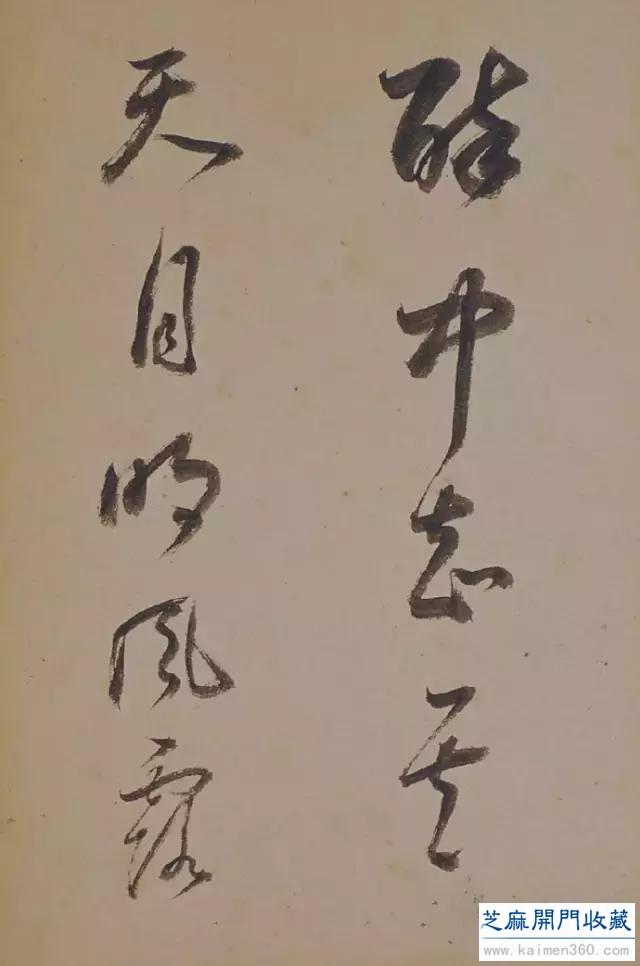 醉中志其
天月明風露
芝麻開門收藏
www.kaimen360.com